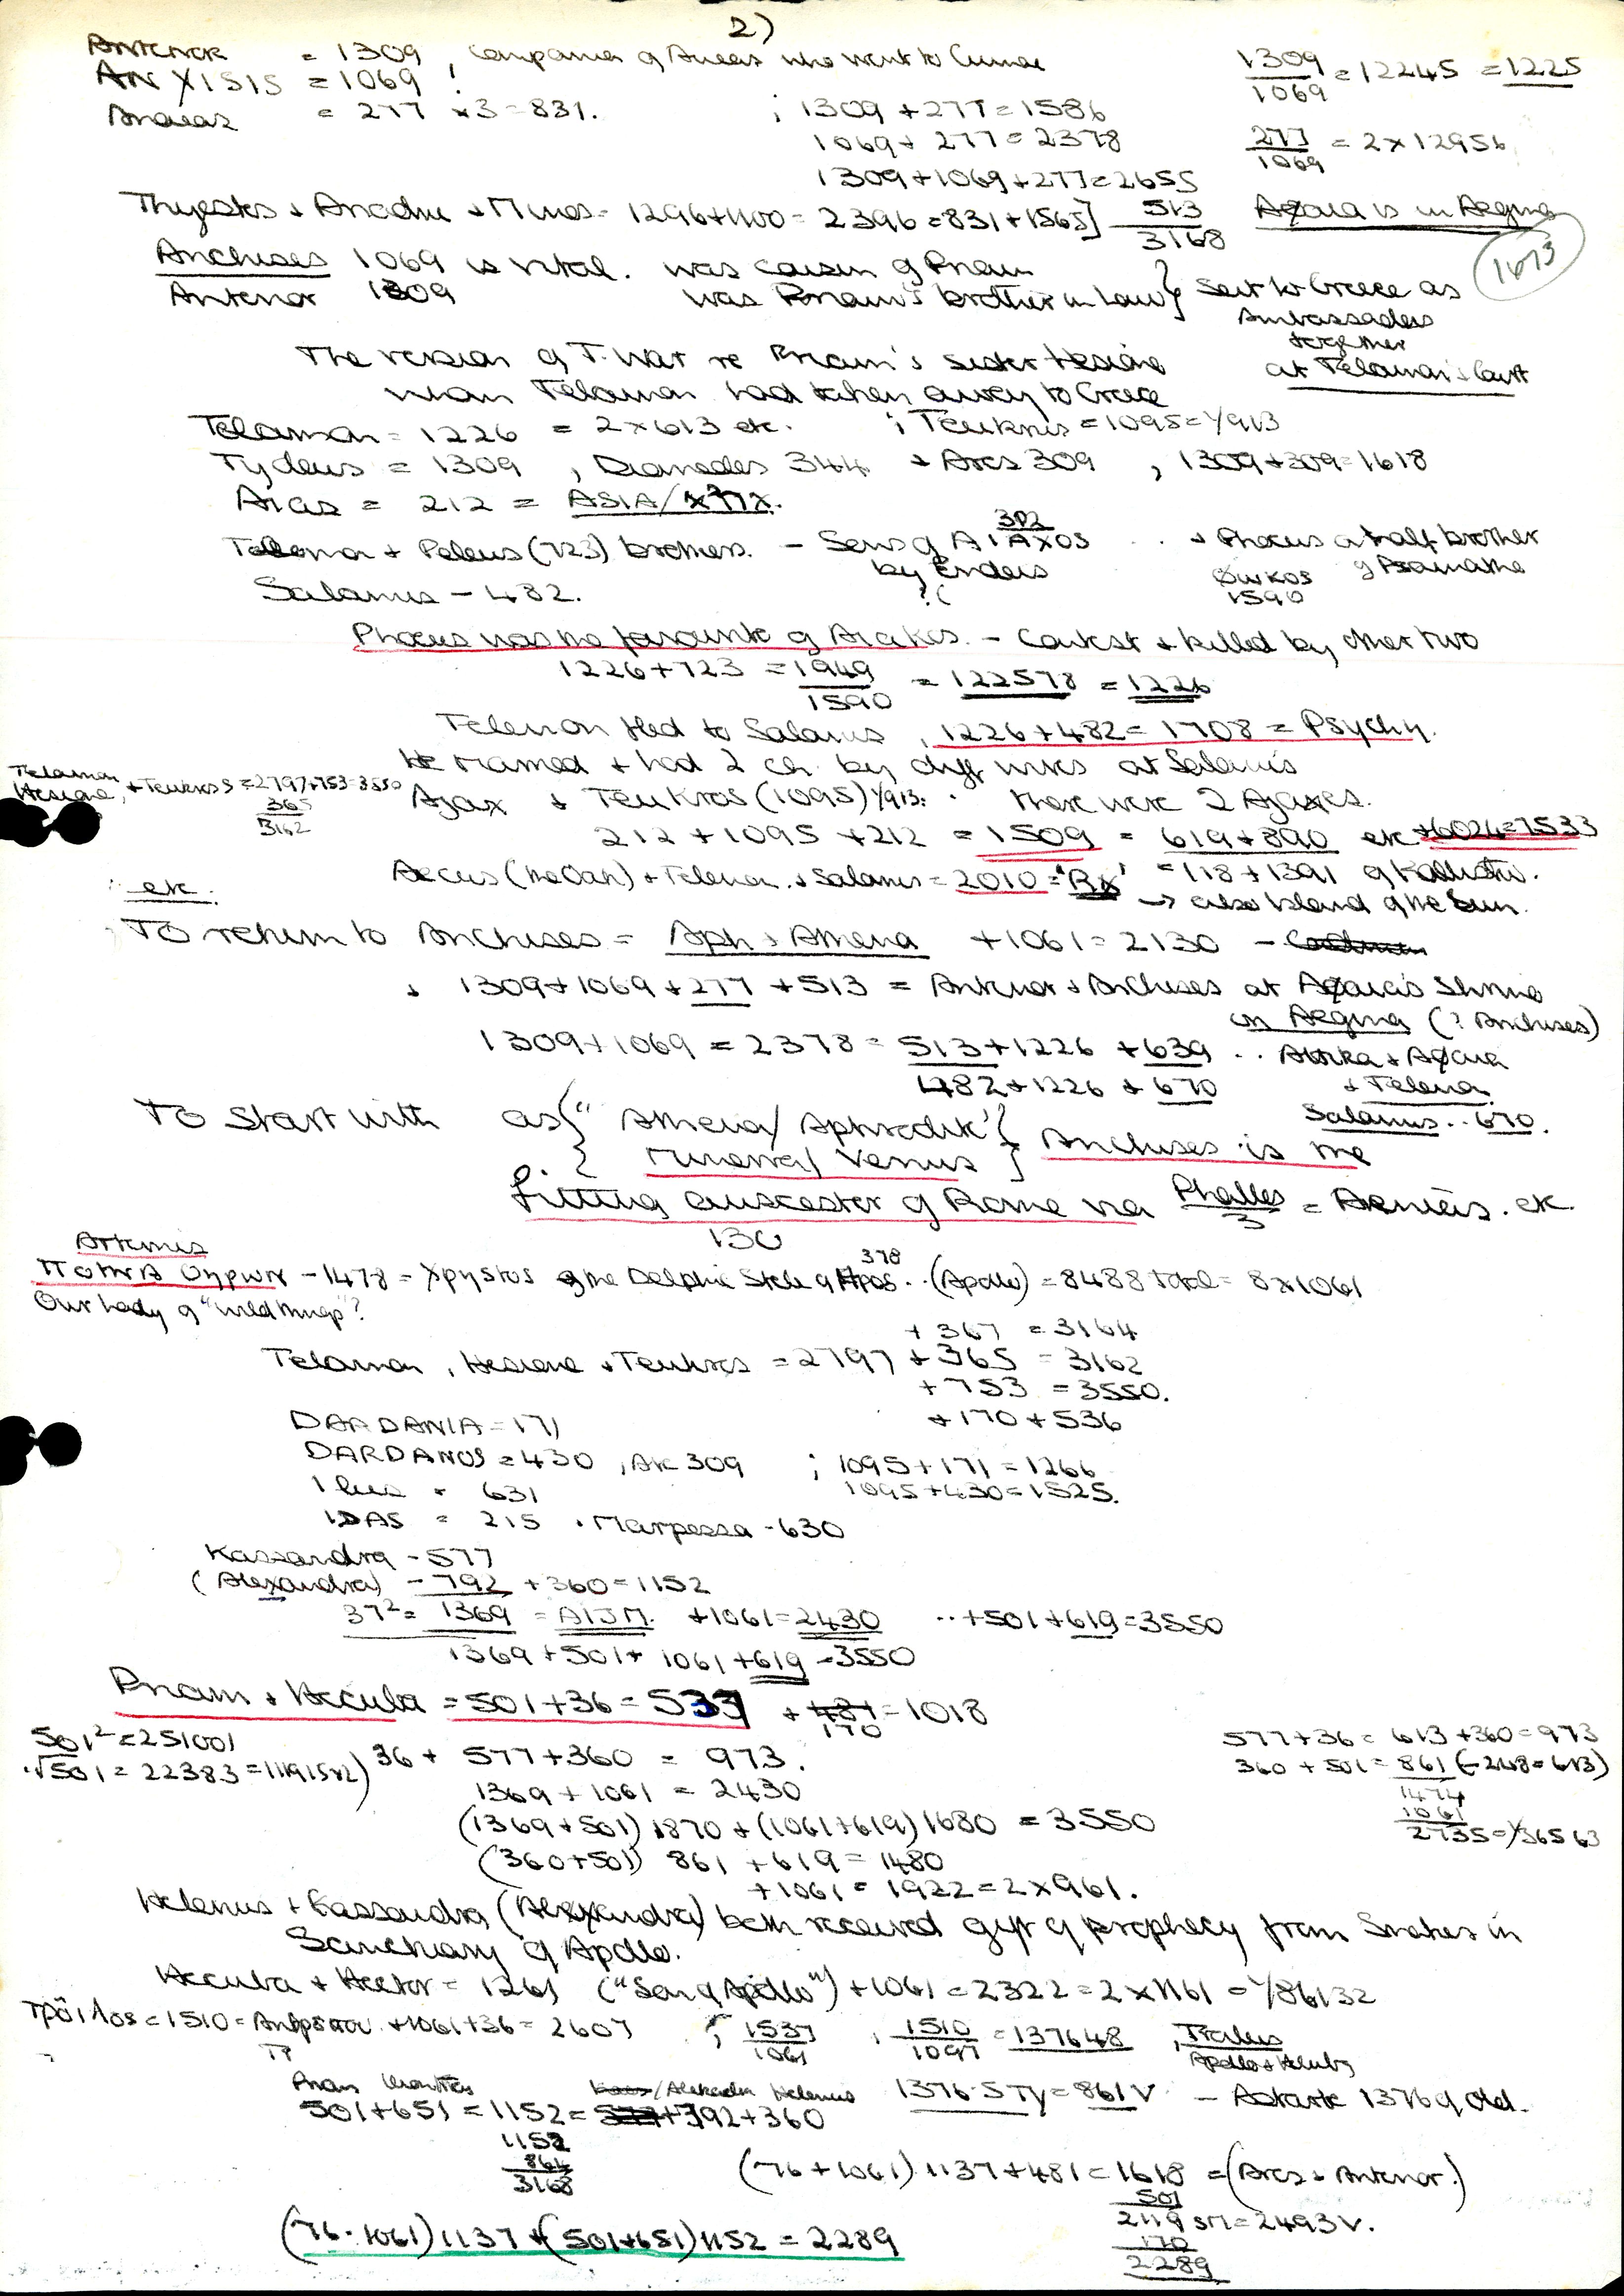 2)
Antenor = 1309, Companion of Aneas who went to Cumae
ANXISIS = 1069 !
Aneas = 277 x3 = 831. ; 1309 + 277 = 1586
1069 + 277 = 2378
1309 + 1069 + 277 = 2655
1309/1069 = 12245 = 1225
277/1069 = 2 x 12956
Thyestes + Ariadne + Minos = 1296 + 1100 = 2396 = 831 + 1565] 513 / 3168
Aφaia is in Aegina
1673
Anchises 1069 is vital. was cousin of Priam
Antenor 1309 was Priam's brother in law } Sent to Greece as Ambassadors together at Telamon's Court
The version of T. War re Priam's sister Hesione
whom Telamon had taken away to Greece
Telamon = 1226 = 2 x 613 etc. ; Teukros = 1095 = Y913
Tydeus = 1309, Diomedes 344 + Ares 309, 1309 + 309 = 1618
Aias = 212 = ASIA/
Telamon + Peleus (723) brothers. - Sons of AIAKOS 302 by Endeis ?( .. + Phocus a half brother of Psamathe
ΦωKOS 1590
Salamis - 482.
Phocus was the favourite of Aiakos. - Contest + killed by other two
1226 + 723 = 1949/1590 = 122578 = 1226
Telamon fled to Salamis, 1226 + 482 = 1708 = Psychy.
He married + had 2 ch. by diff wives at Salamis
Telamon, Hesione, + Teukros = 2797 + 753 = 3550
365
3162
Ajax + Teukros (1095) Y913: . there were 2 Ajaxes.
212 + 1095 + 212 = 1509 = 619 + 890 etc + 6024 = 7533
Aecus (the Oath) + Telamon + Salamis = 2010 = "Rx" = 118 + 1391 of Kallisti.
→ also Island of the Sun.
: etc.
To return to Anchises = Aph + Athena + 1061 = 2130 -
+ 1309 + 1069 + 277 + 513 = Antenor + Anchises at Aφaia's Shrine
in Aegina (? Anchises)
1309 + 1069 = 2378 = 513 + 1226 + 639 .. Attika + Aφaia + Telamon
482 + 1226 + 670 Salamis .. 670.
To start with as {"Athena/Aphrodite"} Anchises is the
{Minerva/Venus}
fitting ancestor of Rome via Phallos/3 = Aeneas. etc.
130
Artemis
ΠOTNIA Θηρων - 1478 = Xρystos of the Delphic Stele of Ηρας 378 .. (Apollo) = 8488 total = 8x1061
Our Lady of "wild things"?
+ 367 = 3164
Telamon, Hesione + Teukros = 2797 + 365 = 3162
+ 753 = 3550.
+ 170 + 536
DARDANIA = 171
DARDANOS = 430, Are 309 ; 1095 + 171 = 1266
Ilus = 631 1095 + 430 = 1525.
IDAS = 215 . Marpessa - 630
Kassandra - 577
(Alexandra) - 792 + 360 = 1152
37² = 1369 = AIJM. + 1061 = 2430 .. + 501 + 619 = 3550
1369 + 501 + 1061 + 619 = 3550
Priam + Hecuba = 501 + 36 = 537 + 481 = 1018
170
501² = 251001
√501 = 22383 = 1191582)
36 + 577 + 360 = 973.
1369 + 1061 = 2430
(1369 + 501) 1870 + (1061 + 619) 1680 = 3550
(360 + 501) 861 + 619 = 1480
+ 1061 = 1922 = 2 x 961.
577 + 36 = 613 + 360 = 973
360 + 501 = 861 (-248 = 613)
1474
1061
2735 = Y36563
Helenus + Kassandra (Alexandra) both received gift of prophecy from Snakes in
Sanctuary of Apollo.
Hecuba + Hector = 1261 ("Son of Apollo") + 1061 = 2322 = 2 x 1161 = Y86132
Τρôιλος = 1510 = + 1061 + 36 = 2607 ; 1537/1061 , 1510/1097 = 137648, Troilus
Apollo + Hecuba
Priam 501 + 651 = 1152 = 577 + 792 + 360
Alexandra Helenus
1376.5Ty = 861V - Astarte 1376 of Old.
1152
864
3168
(76 + 1061) 1137 + 481 = 1618 = (Ares + Antenor.)
501
2119 sm = 2493V.
170
2289
(76 . 1061) 1137 + (501 + 651) 1152 = 2289